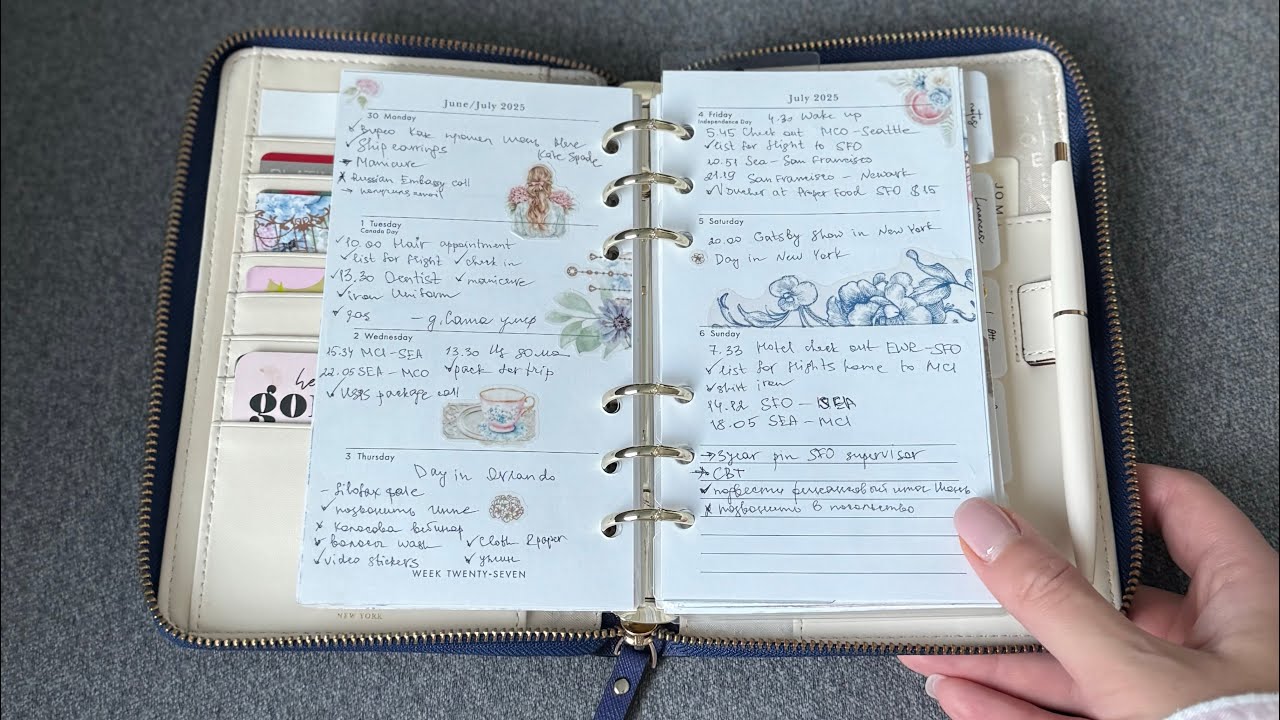 June/July 2025
30 Monday
✓ Видео Как прошел июнь
✓ Ship earrings Kate Spade
Manicure
x Russian Embassy call
1 Tuesday
Canada Day
✓ 10.00 Hair appointment
✓ list for flight ✓ check in
✓ 13.30 Dentist ✓ manicure
✓ iron uniform
✓ gas
2 Wednesday
15.34 MCI-SEA 13.30 Из дома
SEA - MCO ✓ pack for trip
✓ USPS package call
3 Thursday
Day in Orlando
- filofax
✓ позвонить
x
✓ wash ✓ Cloth
✓ video stickers
WEEK TWENTY-SEVEN
NEW YORK
he
go
July 2025
4 Friday 4.30 Wake up
Independence Day
5.45 Check out MCO-Seattle
✓ list for flight to SFO
10.51 Sea - San Francisco
21.19 San Francisco - Newark
✓ Voucher at Proper Food SFO $15
5 Saturday
20.00 Gatsby show in New York
Day in New York
6 Sunday
7.33 Hotel check out EWR-SFO
✓ list for flights home to MCI
✓ shirt iron
SFO - SEA
18.05 SEA - MCI
→ 5 year pin SFO supervisor
→ CBT
✓ подвести финансовый итог Июнь
x позвонить в посольство